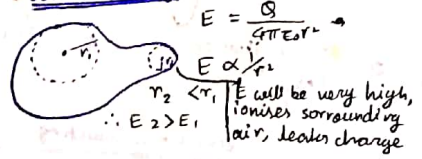 E = Q / 4πε₀r²
r₁
E ∝ 1/r²
r₂ < r₁
∴ E 2 > E₁
E will be very high,
ionises sorrounding
air, leaks charge